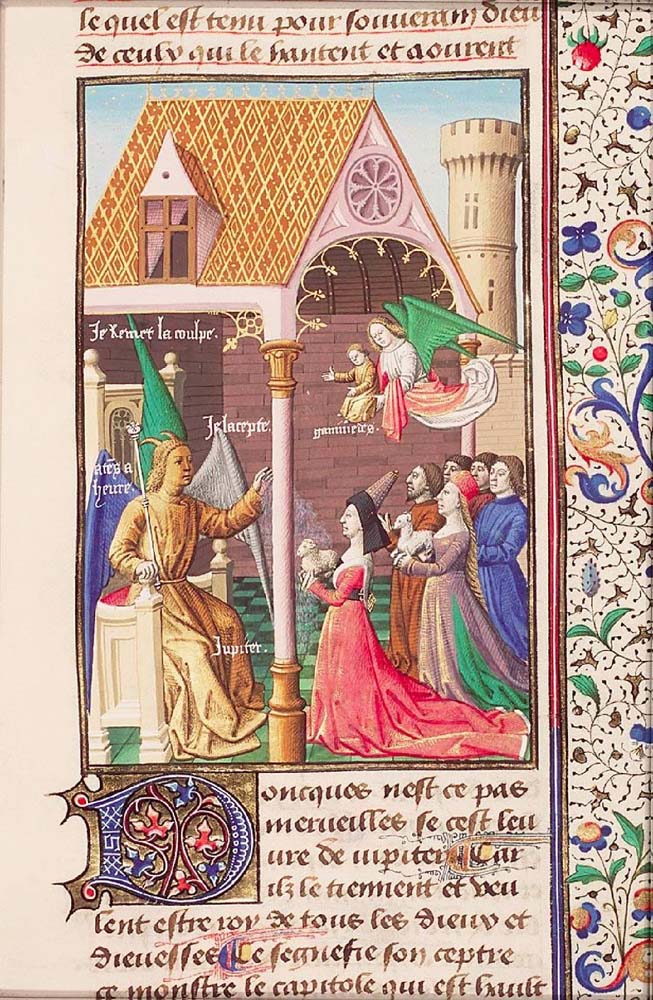 le quel est tenu pour souverain dieu
de ceulx qui le hantent et aourent
Je Remet la coulpe.
Je lacepte.
ganimedes.
heure.
Jupiter.
Doncques nest ce pas
merveilles se cest leu
ure de iupiter Car
ilz le tiennent et veu
lent estre roy de tous les dieux et
dieuesses Ce segnefie son ceptre
ce monstre le capitole qui est hault